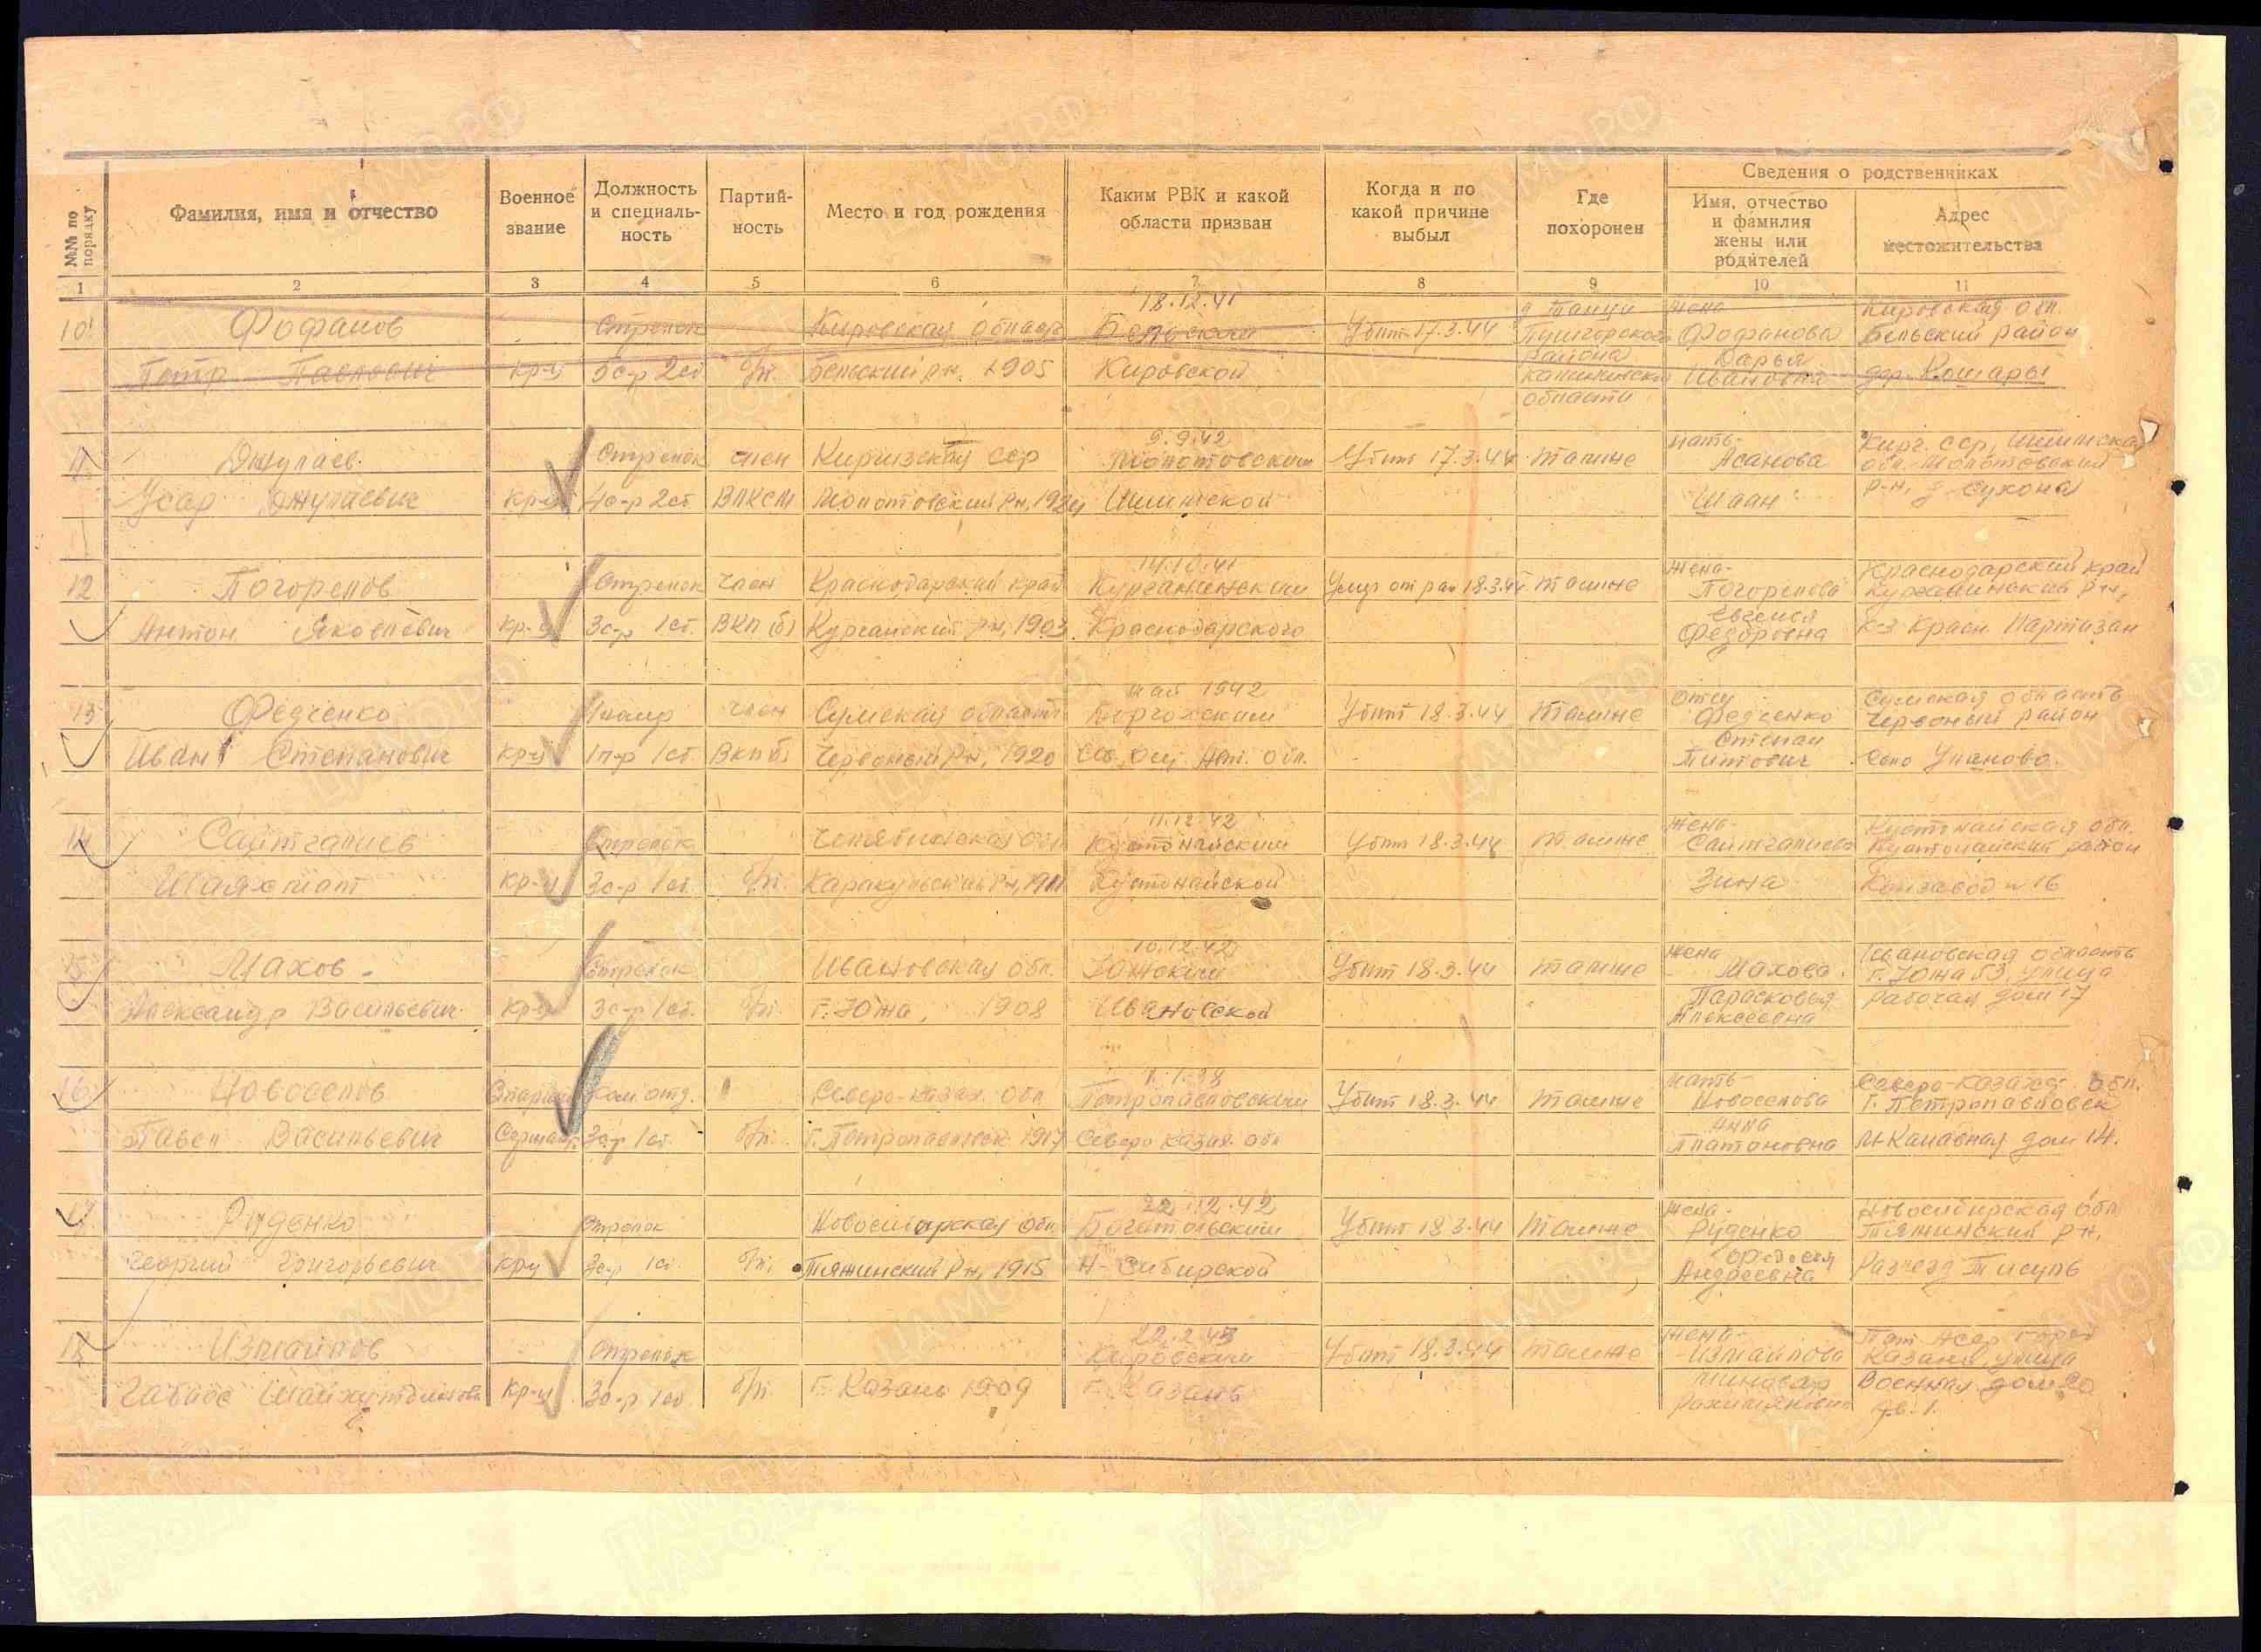 Сведения о родственниках
№№ по порядку
Фамилия, имя и отчество
Военное звание
Должность и специаль-ность
Партий-ность
Место и год рождения
Каким РВК и какой области призван
Когда и по какой причине выбыл
Где похоронен
Имя, отчество и фамилия жены или родителей
Адрес местожительства
1 2 3 4 5 6 7 8 9 10 11
18.12.41 жена Кировская обл.
10 Фофанов Стрелок Кировская область Бельский Убит 17.3.44 Пушгорского Фофанова Бельский район
района Дарья
Петр Павлович кр-ц 5с-р 2ст б/п. Бельский рн. 1905 Кировской Калининской Ивановна дер. Кошары
области
9.9.42 мать- Кирг. сср,
11 Джулаев Стрелок член Киргизская сср Молотовским Убит 17.3.44 Там же Асанова обл. Молотовский
Усар Джулаевич кр-ц 4с-р 2ст ВЛКСМ Молотовский рн, 1924 Шаан р-н,
14.10.41 жена- Краснодарский край
12 Погорелов Стрелок член Краснодарский край Курганинским Умер от ран 18.3.44 Там же Погорелова Курганинский р-н,
Евгения
Антон Яковлевич кр-ц 3с-р 1ст. ВКП(б) Курганский рн, 1903 Краснодарского Федоровна к-з Красн. Партизан
май 1942 Отец Сумская область
13 Федченко член Сумская область Убит 18.3.44 Там же Федченко Червоный район
Степан
Иван Степанович кр-ц 1ст. ВКПб) Червоный рн, 1920 Сев. Осет. обл. Титович Село Уланово.
11.12.42 жена- Кустонайская обл.
14 Сайтгалиев Стрелок Челябинская обл Кустонайским Убит 18.3.44 Там же Сайтгалиева Кустонайский район
Шаяхмат кр-ц 3с-р 1ст. б/п. 1911 Кустонайской Зина Конзавод № 16
10.12.42 жена Ивановская область
15 Махов Стрелок Ивановская обл. Южским Убит 18.3.44 Там же Махова г. Южа улица
Парасковья Рабочая дом 17
Александр Васильевич кр-ц 3с-р 1ст. б/п г. Южа, 1908 Ивановской Алексеевна
1.1.38 мать- Северо-казахс. обл.
16 Новоселов Старший Ком отд. Северо-казах. обл Петропавловским Убит 18.3.44 Там же Новоселова г. Петропавловск
Анна
Павел Васильевич Сержант 3с-р 1ст. б/п. г. Петропавловск 1917 Северо казах. обл Платоновна дом 14.
22.12.42 жена- Новосибирская обл
17 Руденко Стрелок Новосибирская обл. Боготольским Убит 18.3.44 Там же Руденко Тяжинский рн,
Георгий Григорьевич кр-ц 3с-р 1ст б/п. Тяжинский рн, 1915 Н-Сибирской Андреевна Разъезд Тисуль
22.2.43 жена-
18 Измайлов Стрелок Кировским Убит 18.3.44 Там же Измайлова Казань, улица
Габбас кр-ц 3с-р 1ст б/п. г. Казань 1909 г. Казань Военная дом
кв. 1.